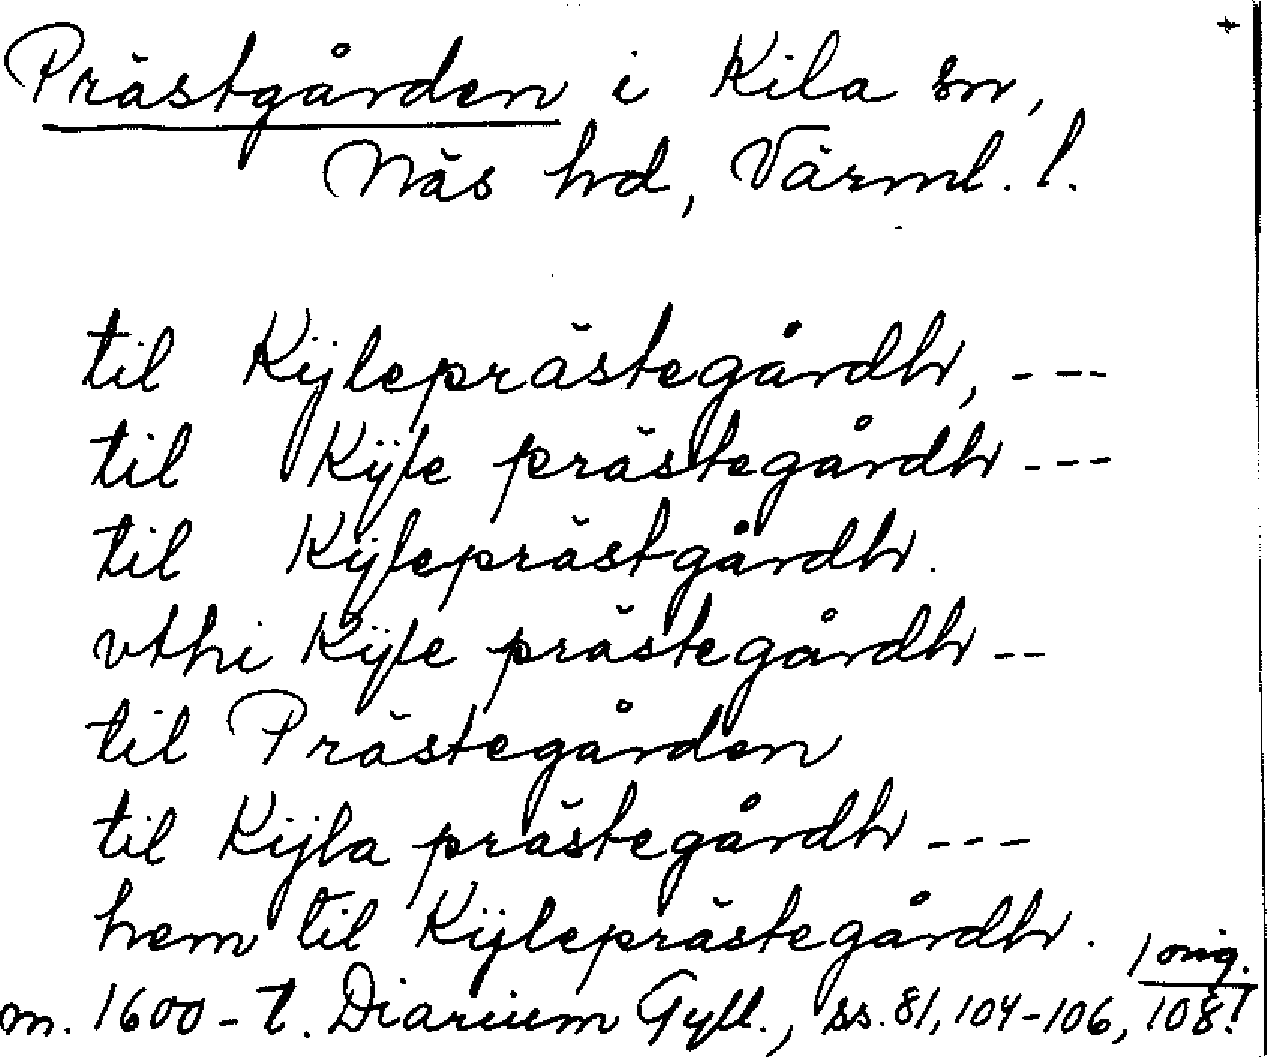 +
Prästgården i Kila sn,
Näs hd, Värml. l.
til Kijleprästegårdh, ---
til Kijle prästegårdh ---
til Kijleprästgårdh.
vthi Kijle prästegårdh --
til Prästegården
til Kijla prästegårdh ---
hem til Kijleprästegårdh.
/ orig.
m. 1600-t. Diarium Gyll., ss. 81, 104-106, 108!